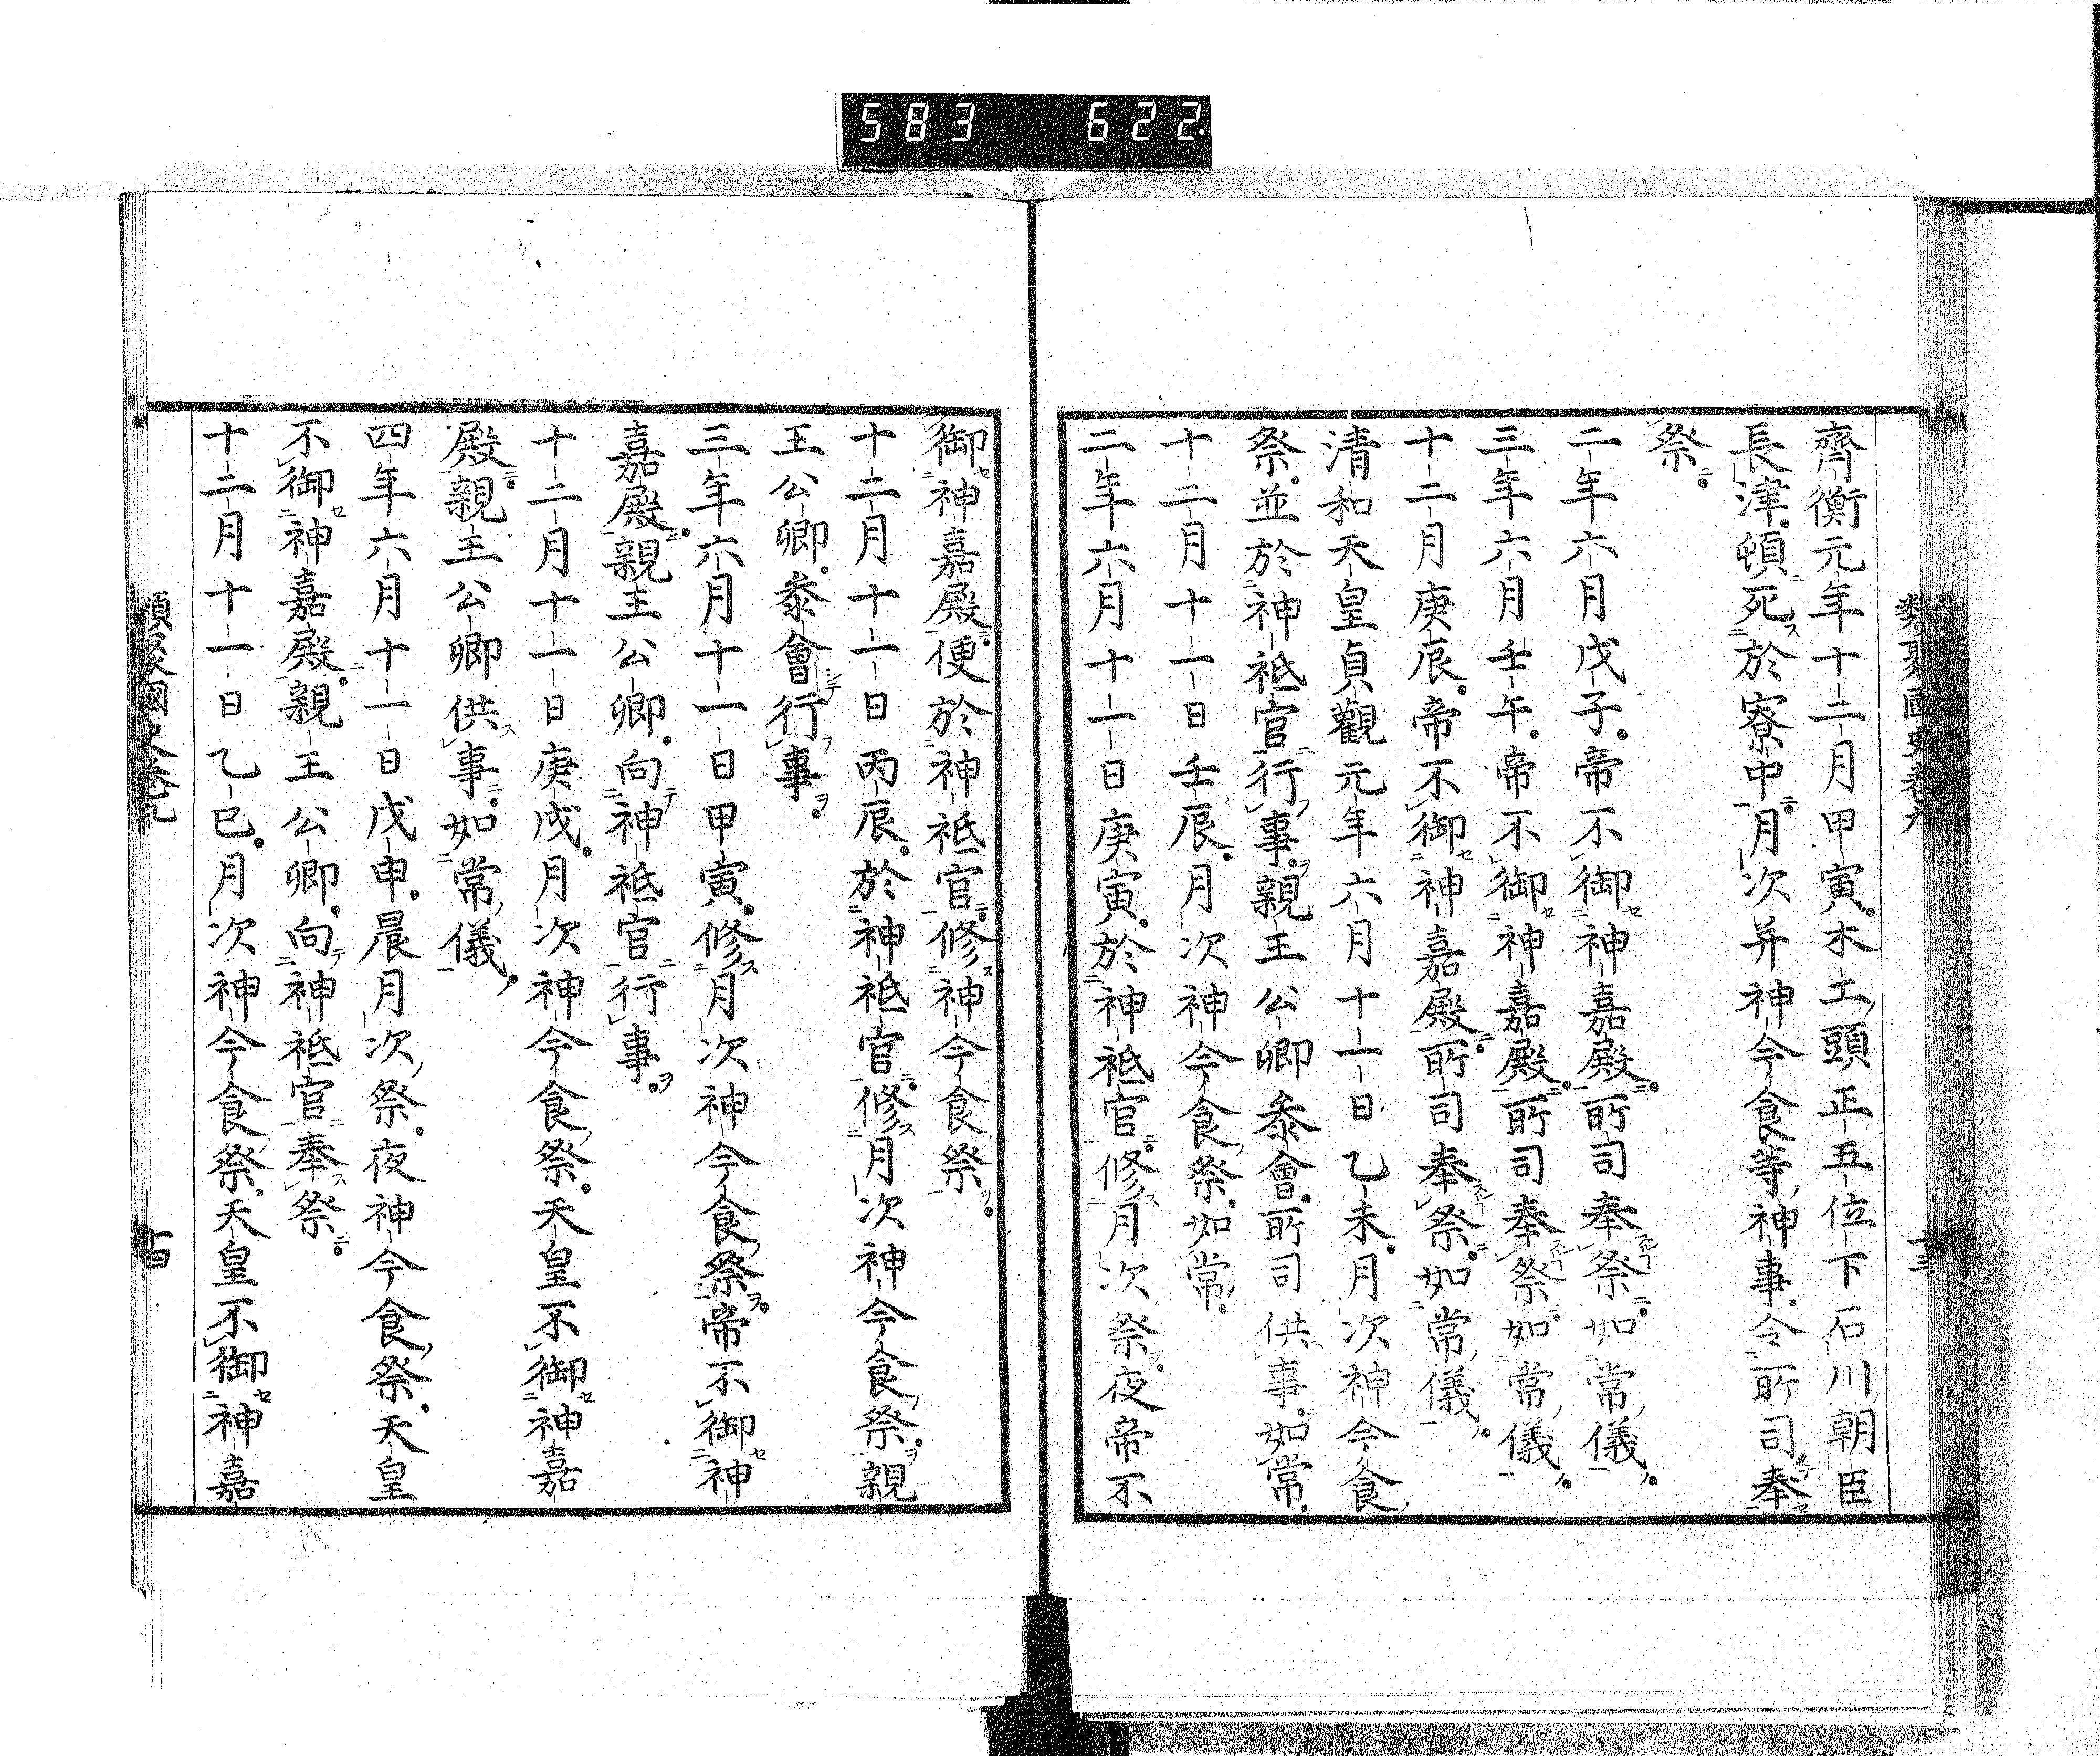 583 622
類聚國史卷九 十三
齊衡元年十二月甲寅木工頭正五位下石川朝臣
長津頓死於寮中月次并神今食等神事令所司奉
祭
二年六月戊子帝不御神嘉殿所司奉祭如常儀
三年六月壬午帝不御神嘉殿所司奉祭如常儀
十二月庚辰帝不御神嘉殿所司奉祭如常儀
清和天皇貞觀元年六月十一日乙未月次神今食
祭並於神祇官行事親王公卿叅會所司供事如常
十二月十一日壬辰月次神今食祭如常
二年六月十一日庚寅於神祇官修月次祭夜帝不
御神嘉殿便於神祇官修神今食祭
十二月十一日丙辰於神祇官修月次神今食祭親
王公卿叅會行事
三年六月十一日甲寅修月次神今食祭帝不御神
嘉殿親王公卿向神祇官行事
十二月十一日庚戌月次神今食祭天皇不御神嘉
殿親王公卿供事如常儀
四年六月十一日戊申晨月次祭夜神今食祭天皇
不御神嘉殿親王公卿向神祇官奉祭
十二月十一日乙巳月次神今食祭天皇不御神嘉
類聚國史卷九 十四